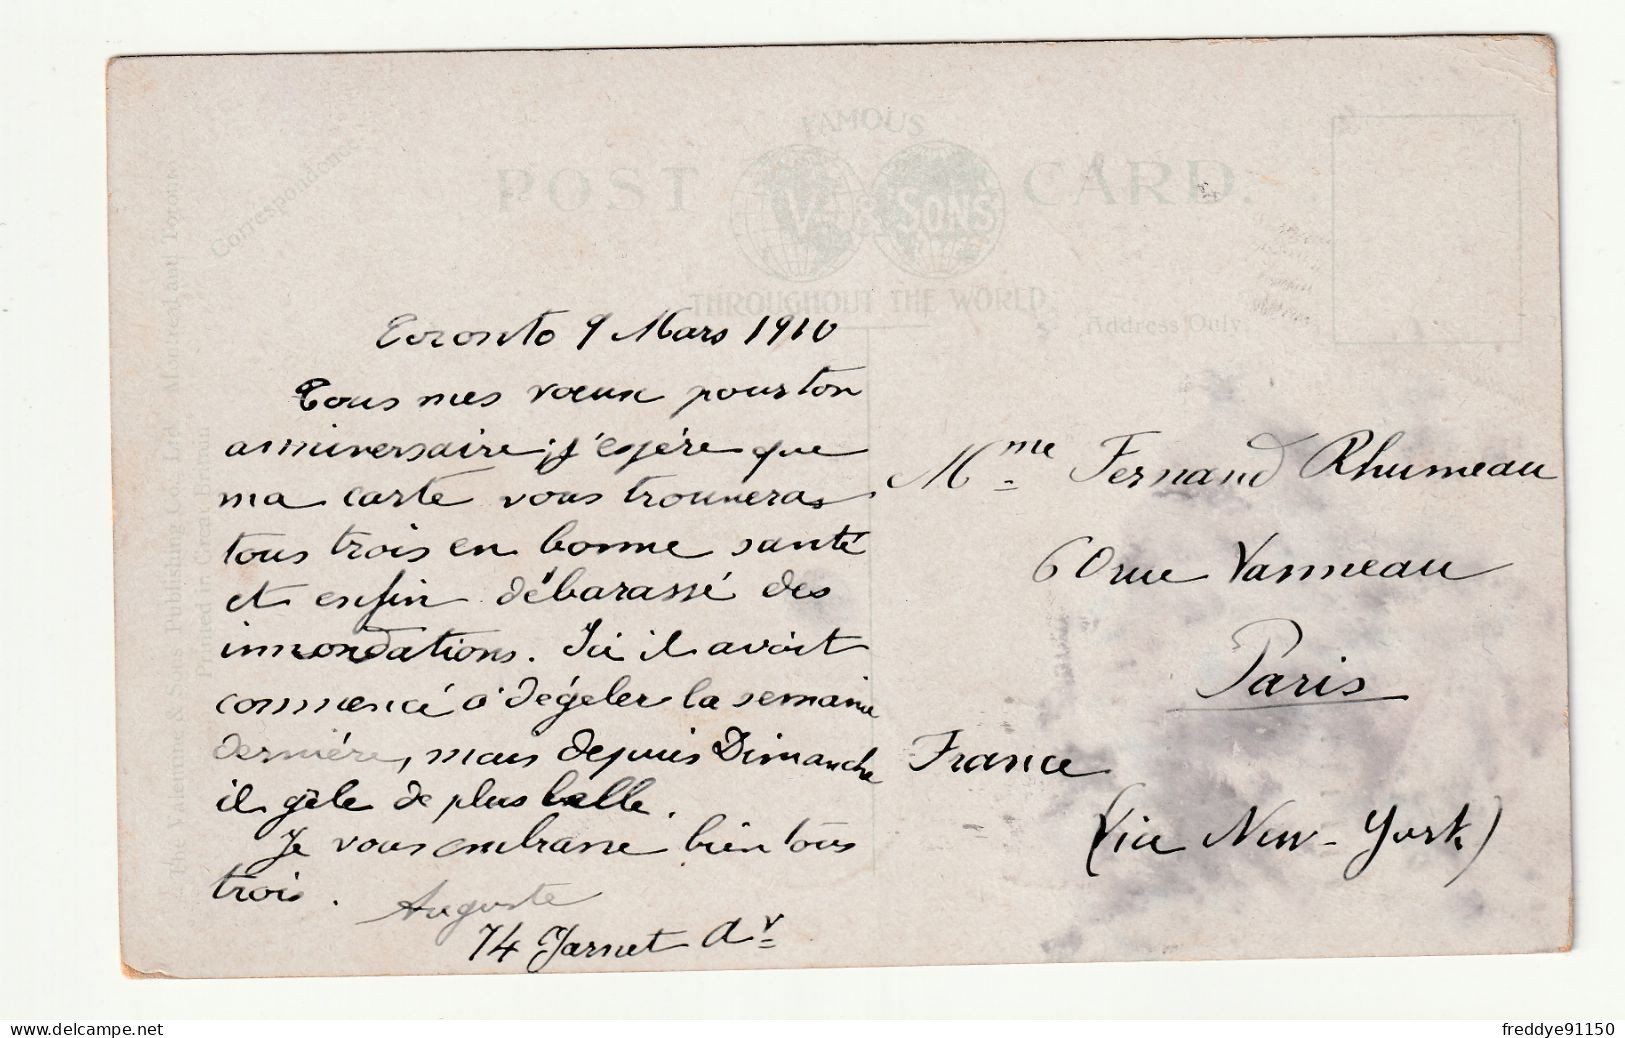 FAMOUS
POST CARD.
V. & SONS
THROUGHOUT THE WORLD
Correspondence.
Address Only.
The Valentine & Sons Publishing Co., Ltd., Montreal and Toronto.
Printed in Great Britain
Toronto 9 Mars 1910
Tous mes vœux pour ton
anniversaire ; j'espère que
ma carte vous trouveras
tous trois en bonne santé
et enfin débarassé des
innondations. Ici il avait
commencé à dégeler la semaine
dernière, mais depuis Dimanche
il gèle de plus belle.
Je vous embrasse bien tous
trois.
Auguste
74 Jarnet Av
Mme Fernand Rhumeau
60 rue Vanneau
Paris
France
(via New-York)
freddye91150
© www.delcampe.net